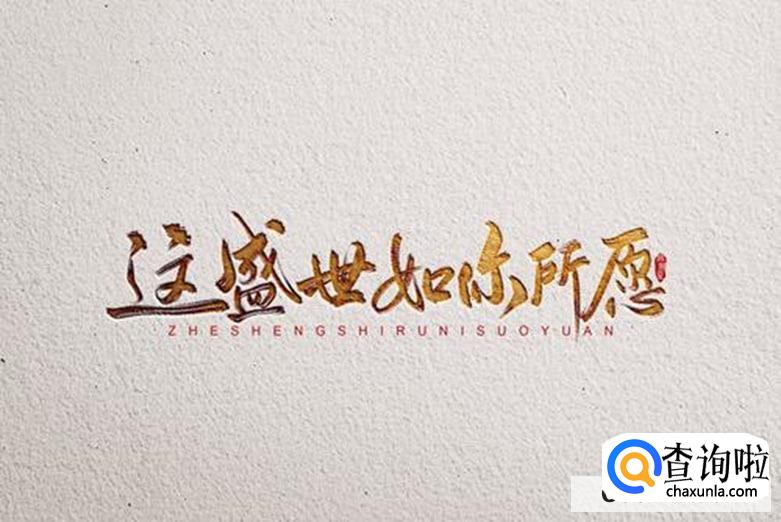 这盛世如你所愿
ZHESHENGSHIRUNISUOYUAN
查询啦
chaxunla.com